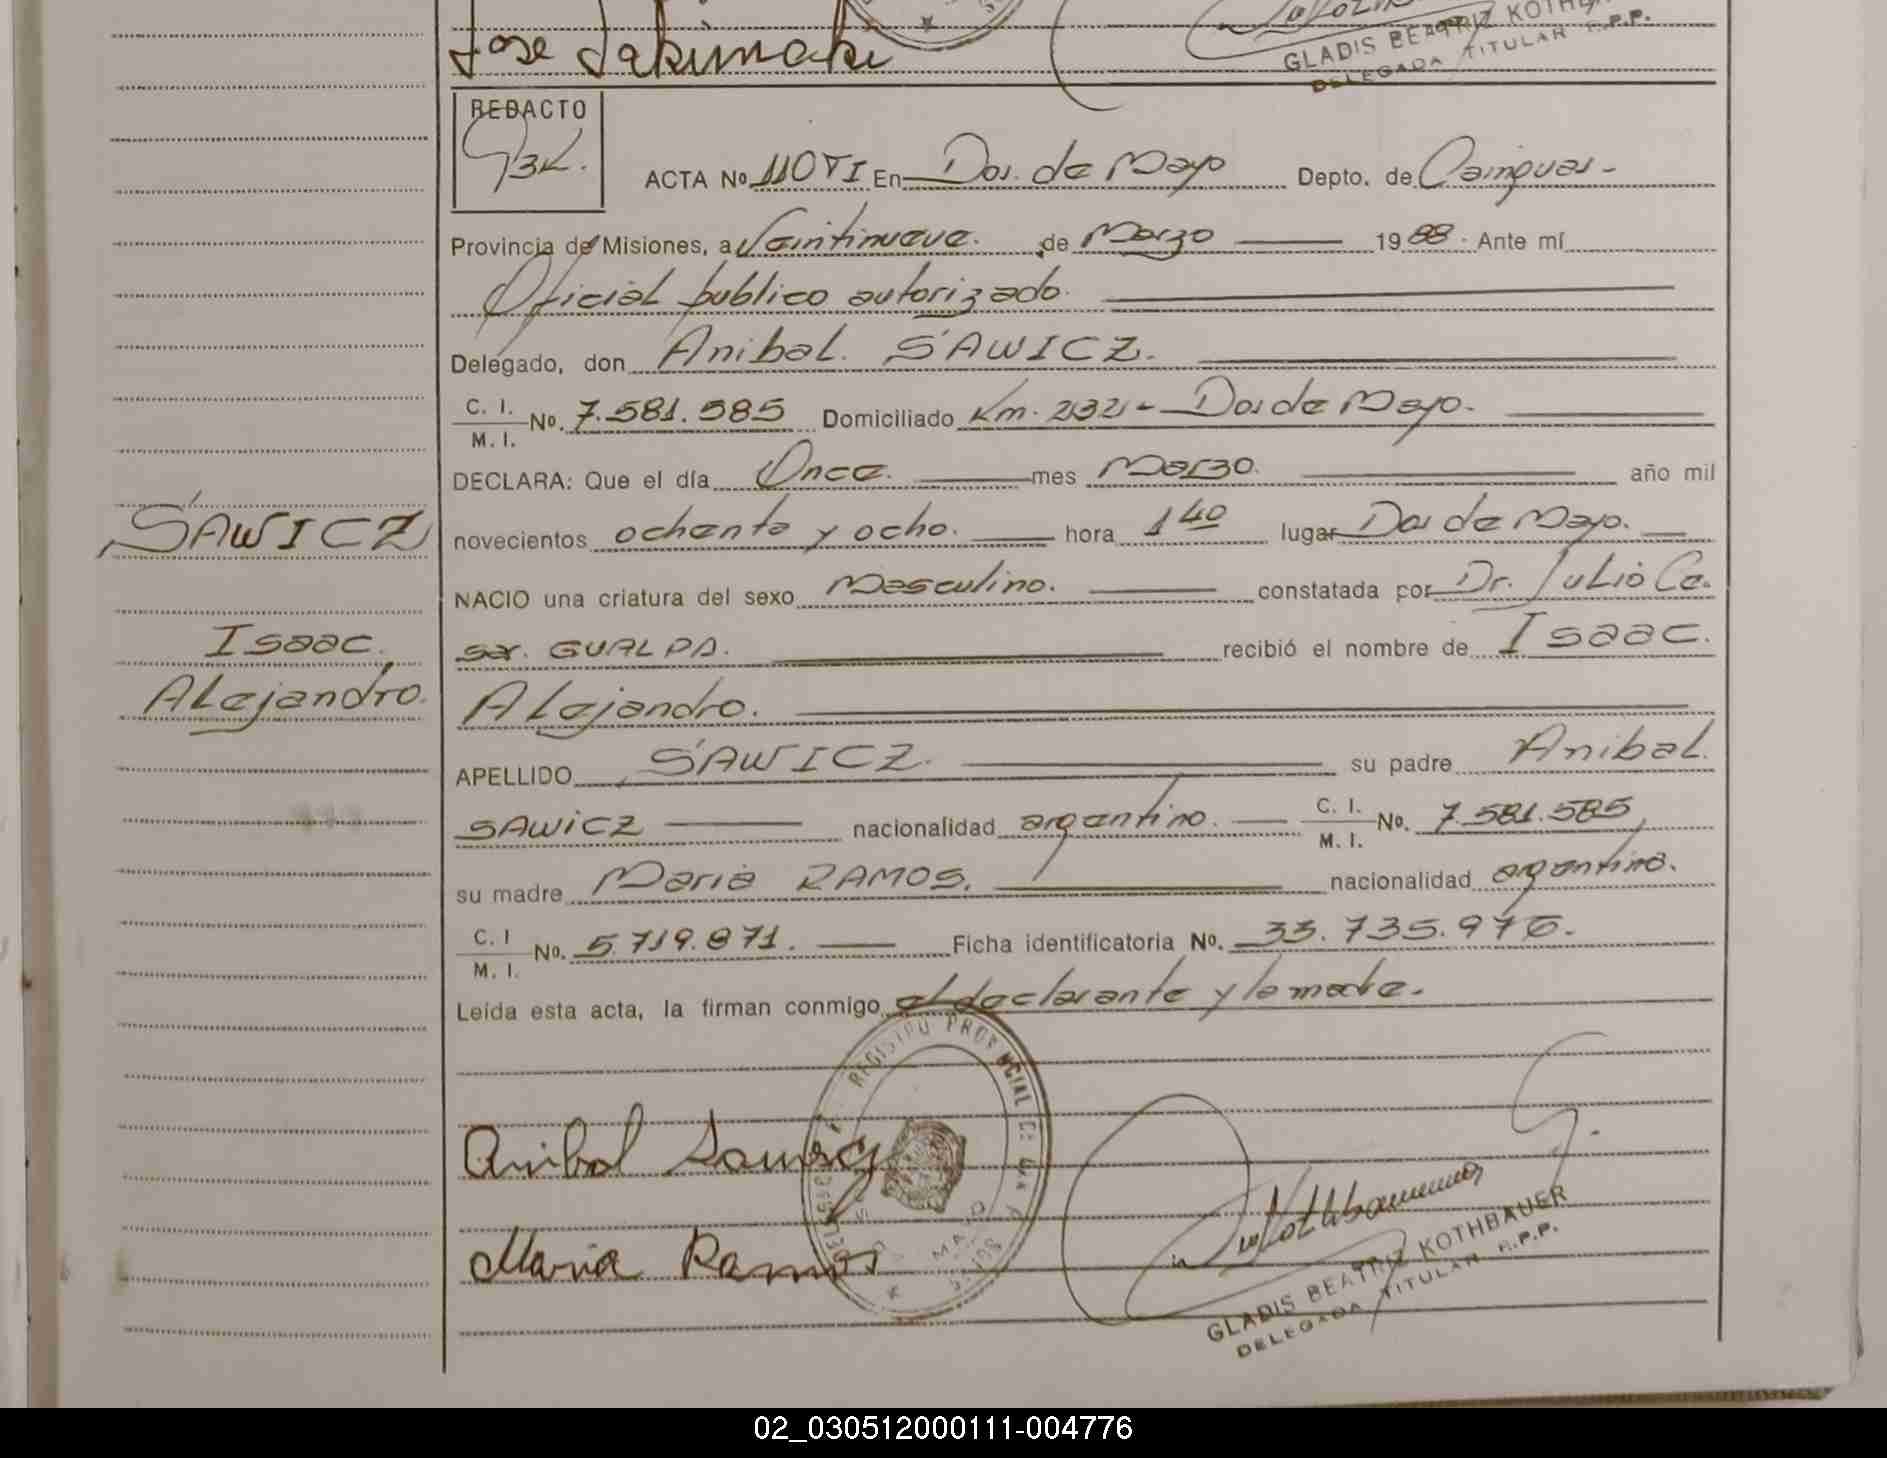 Jose
GLADIS BEATRIZ KOTHBAUER
DELEGADA TITULAR R.P.P.
REDACTO
ACTA Nº 110 TI En Dos de Mayo Depto. de Cainguas-
Provincia de Misiones, a Veintinueve. de Marzo 1988. Ante mí
Oficial publico autorizado.
Delegado, don Anibal. SAWICZ.
C. I.
M. I. No. 7.581.585 Domiciliado Km. 232 - Dos de Mayo.
DECLARA: Que el día Once. mes Marzo. año mil
SAWICZ novecientos ochenta y ocho. hora 1 40 lugar Dos de Mayo.
NACIO una criatura del sexo Masculino. constatada por Dr. Julio Ce.
Isaac. sar. GUALPA. recibió el nombre de Isaac.
Alejandro. Alejandro.
APELLIDO SAWICZ. su padre Anibal.
SAWICZ nacionalidad argentino. C. I.
M. I. No. 7.581.585
su madre Maria RAMOS. nacionalidad argentina.
C. I
M. I. No. 5.719.871. Ficha identificatoria No. 33.735.976.
Leída esta acta, la firman conmigo el declarante y la madre.
REGISTRO PROVINCIAL DE LAS
MAYO
Anibal Sawicz
Maria Ramos
GLADIS BEATRIZ KOTHBAUER
DELEGADA TITULAR R.P.P.
02_030512000111-004776